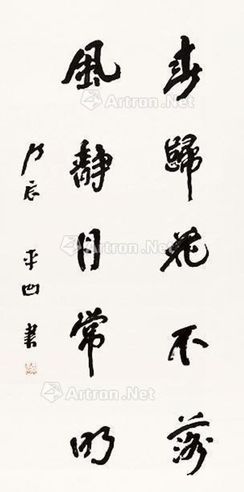 春歸花不落
風靜月常明
丙辰 平凹書
Artron.Net
Artron.Net
Artron.Net
Artron.Net